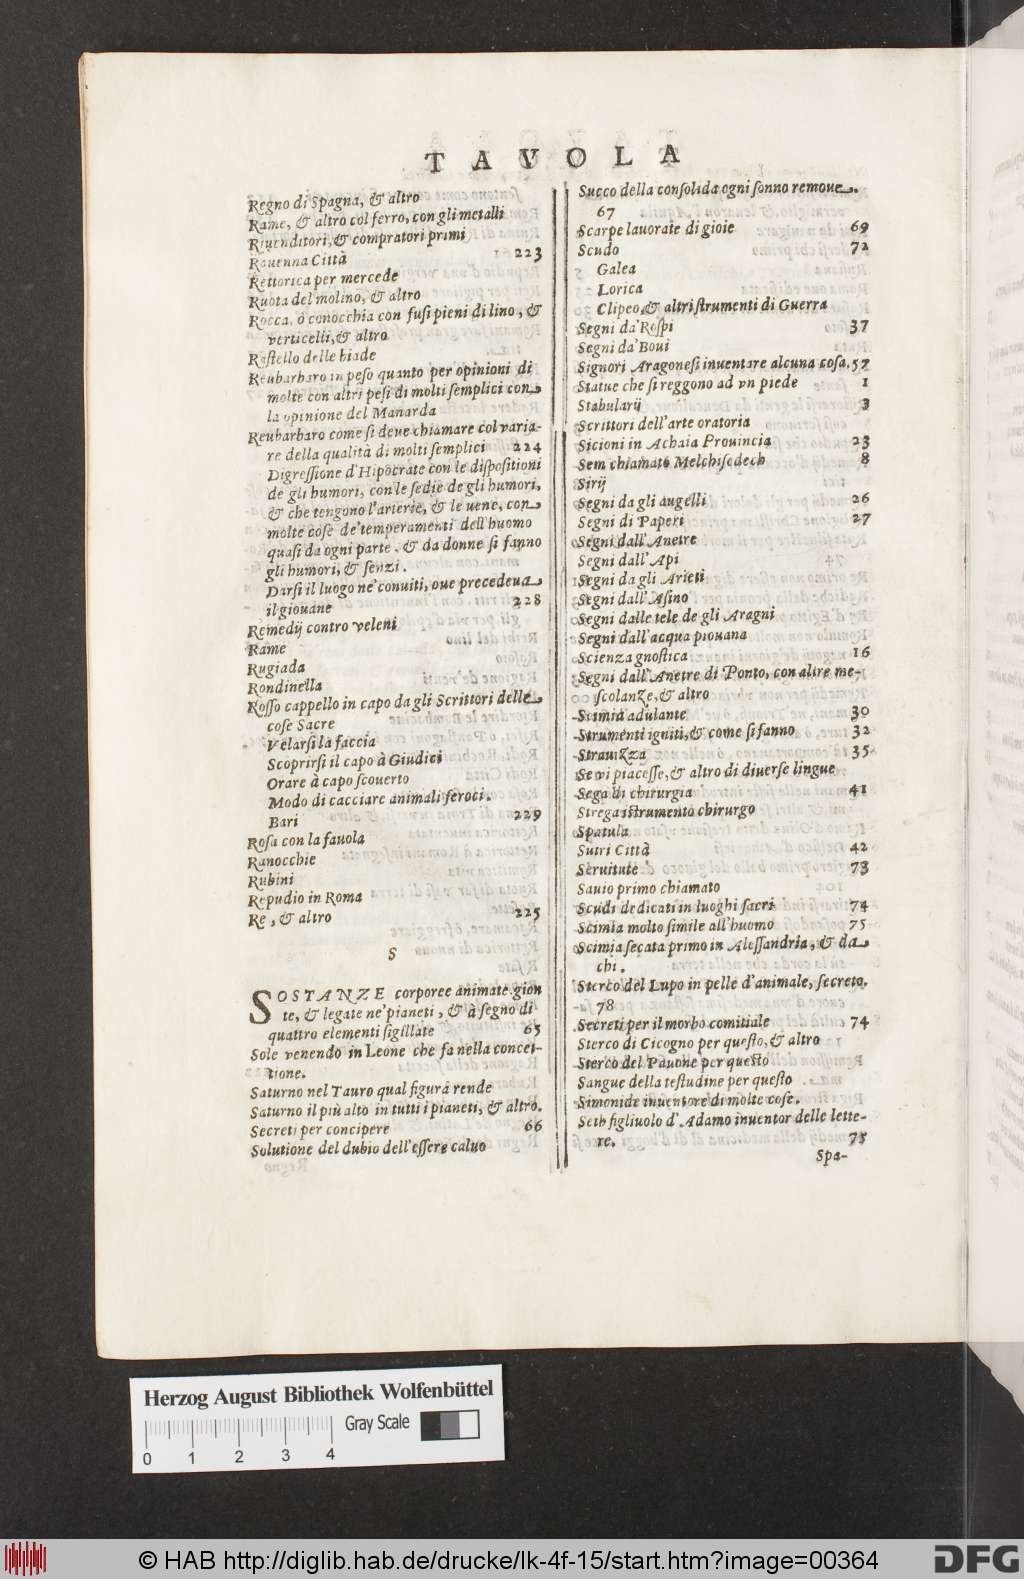 TAVOLA
Regno di Spagna, & altro
Rame, & altro col ferro, con gli metalli
Riuenditori, & compratori primi
Rauenna Città 223
Rettorica per mercede
Ruota del molino, & altro
Rocca, ò conocchia con fusi pieni di lino, &
verticelli, & altro
Rastello delle biade
Reubarbaro in peso quanto per opinioni di
molte con altri pesi di molti semplici con
la opinione del Manarda
Reubarbaro come si deue chiamare col varia-
re della qualità di molti semplici 224
Digressione d'Hipocrate con le dispositioni
de gli humori, con le sedie de gli humori,
& che tengono l'arterie, & le uene, con
molte cose de'temperamenti dell'huomo
quasi da ogni parte. & da donne si fanno
gli humori, & senzi.
Darsi il luogo ne'conuiti, oue precedeua
il giouane 228
Remedij contro veleni
Rame
Rugiada
Rondinella
Rosso cappello in capo da gli Scrittori delle
cose Sacre
Velarsi la faccia
Scoprirsi il capo à Giudici
Orare à capo scouerto
Modo di cacciare animali feroci.
Bari 229
Rosa con la fauola
Ranocchie
Rubini
Repudio in Roma
Re, & altro 225
S
SOSTANZE corporee animate gion
te, & legate ne'pianeti, & à segno di
quattro elementi sigillate 65
Sole venendo in Leone che fa nella concet-
tione.
Saturno nel Tauro qual figura rende
Saturno il più alto in tutti i pianeti, & altro.
Secreti per concipere 66
Solutione del dubio dell'essere caluo
Succo della consolida ogni sonno remoue.
67
Scarpe lauorate di gioie 69
Scudo 72
Galea
Lorica
Clipeo, & altri strumenti di Guerra
Segni da'Rospi 37
Segni da'Boui
Signori Aragonesi inuentare alcuna cosa. 57
Statue che si reggono ad vn piede 1
Stabularij 3
Scrittori dell'arte oratoria
Sicioni in Achaia Prouincia 23
Sem chiamato Melchisedech 8
Sirij
Segni da gli augelli 26
Segni di Paperi 27
Segni dall'Anetre
Segni dall'Api
Segni da gli Arieti
Segni dall'Asino
Segni dalle tele de gli Aragni
Segni dall'acqua piouana
Scienza gnostica 16
Segni dall'Anetre di Ponto, con altre me-
scolanze, & altro
Scimia adulante 30
Strumenti igniti, & come si fanno 32
Strauizza 35
Se vi piacesse, & altro di diuerse lingue
Sega di chirurgia 41
Strega istrumento chirurgo
Spatula
Sutri Città 42
Seruitute 73
Sauio primo chiamato
Scudi dedicati in luoghi sacri 74
Scimia molto simile all'huomo 75
Scimia secata primo in Alessandria, & da
chi.
Sterco del Lupo in pelle d'animale, secreto.
78
Secreti per il morbo comitiale 74
Sterco di Cicogno per questo, & altro
Sterco del Pauone per questo
Sangue della testudine per questo
Simonide inuentore di molte cose.
Seth figliuolo d'Adamo inuentor delle lette-
re. 75
Spa-
Herzog August Bibliothek Wolfenbüttel
Gray Scale
0 1 2 3 4
© HAB http://diglib.hab.de/drucke/lk-4f-15/start.htm?image=00364
DFG